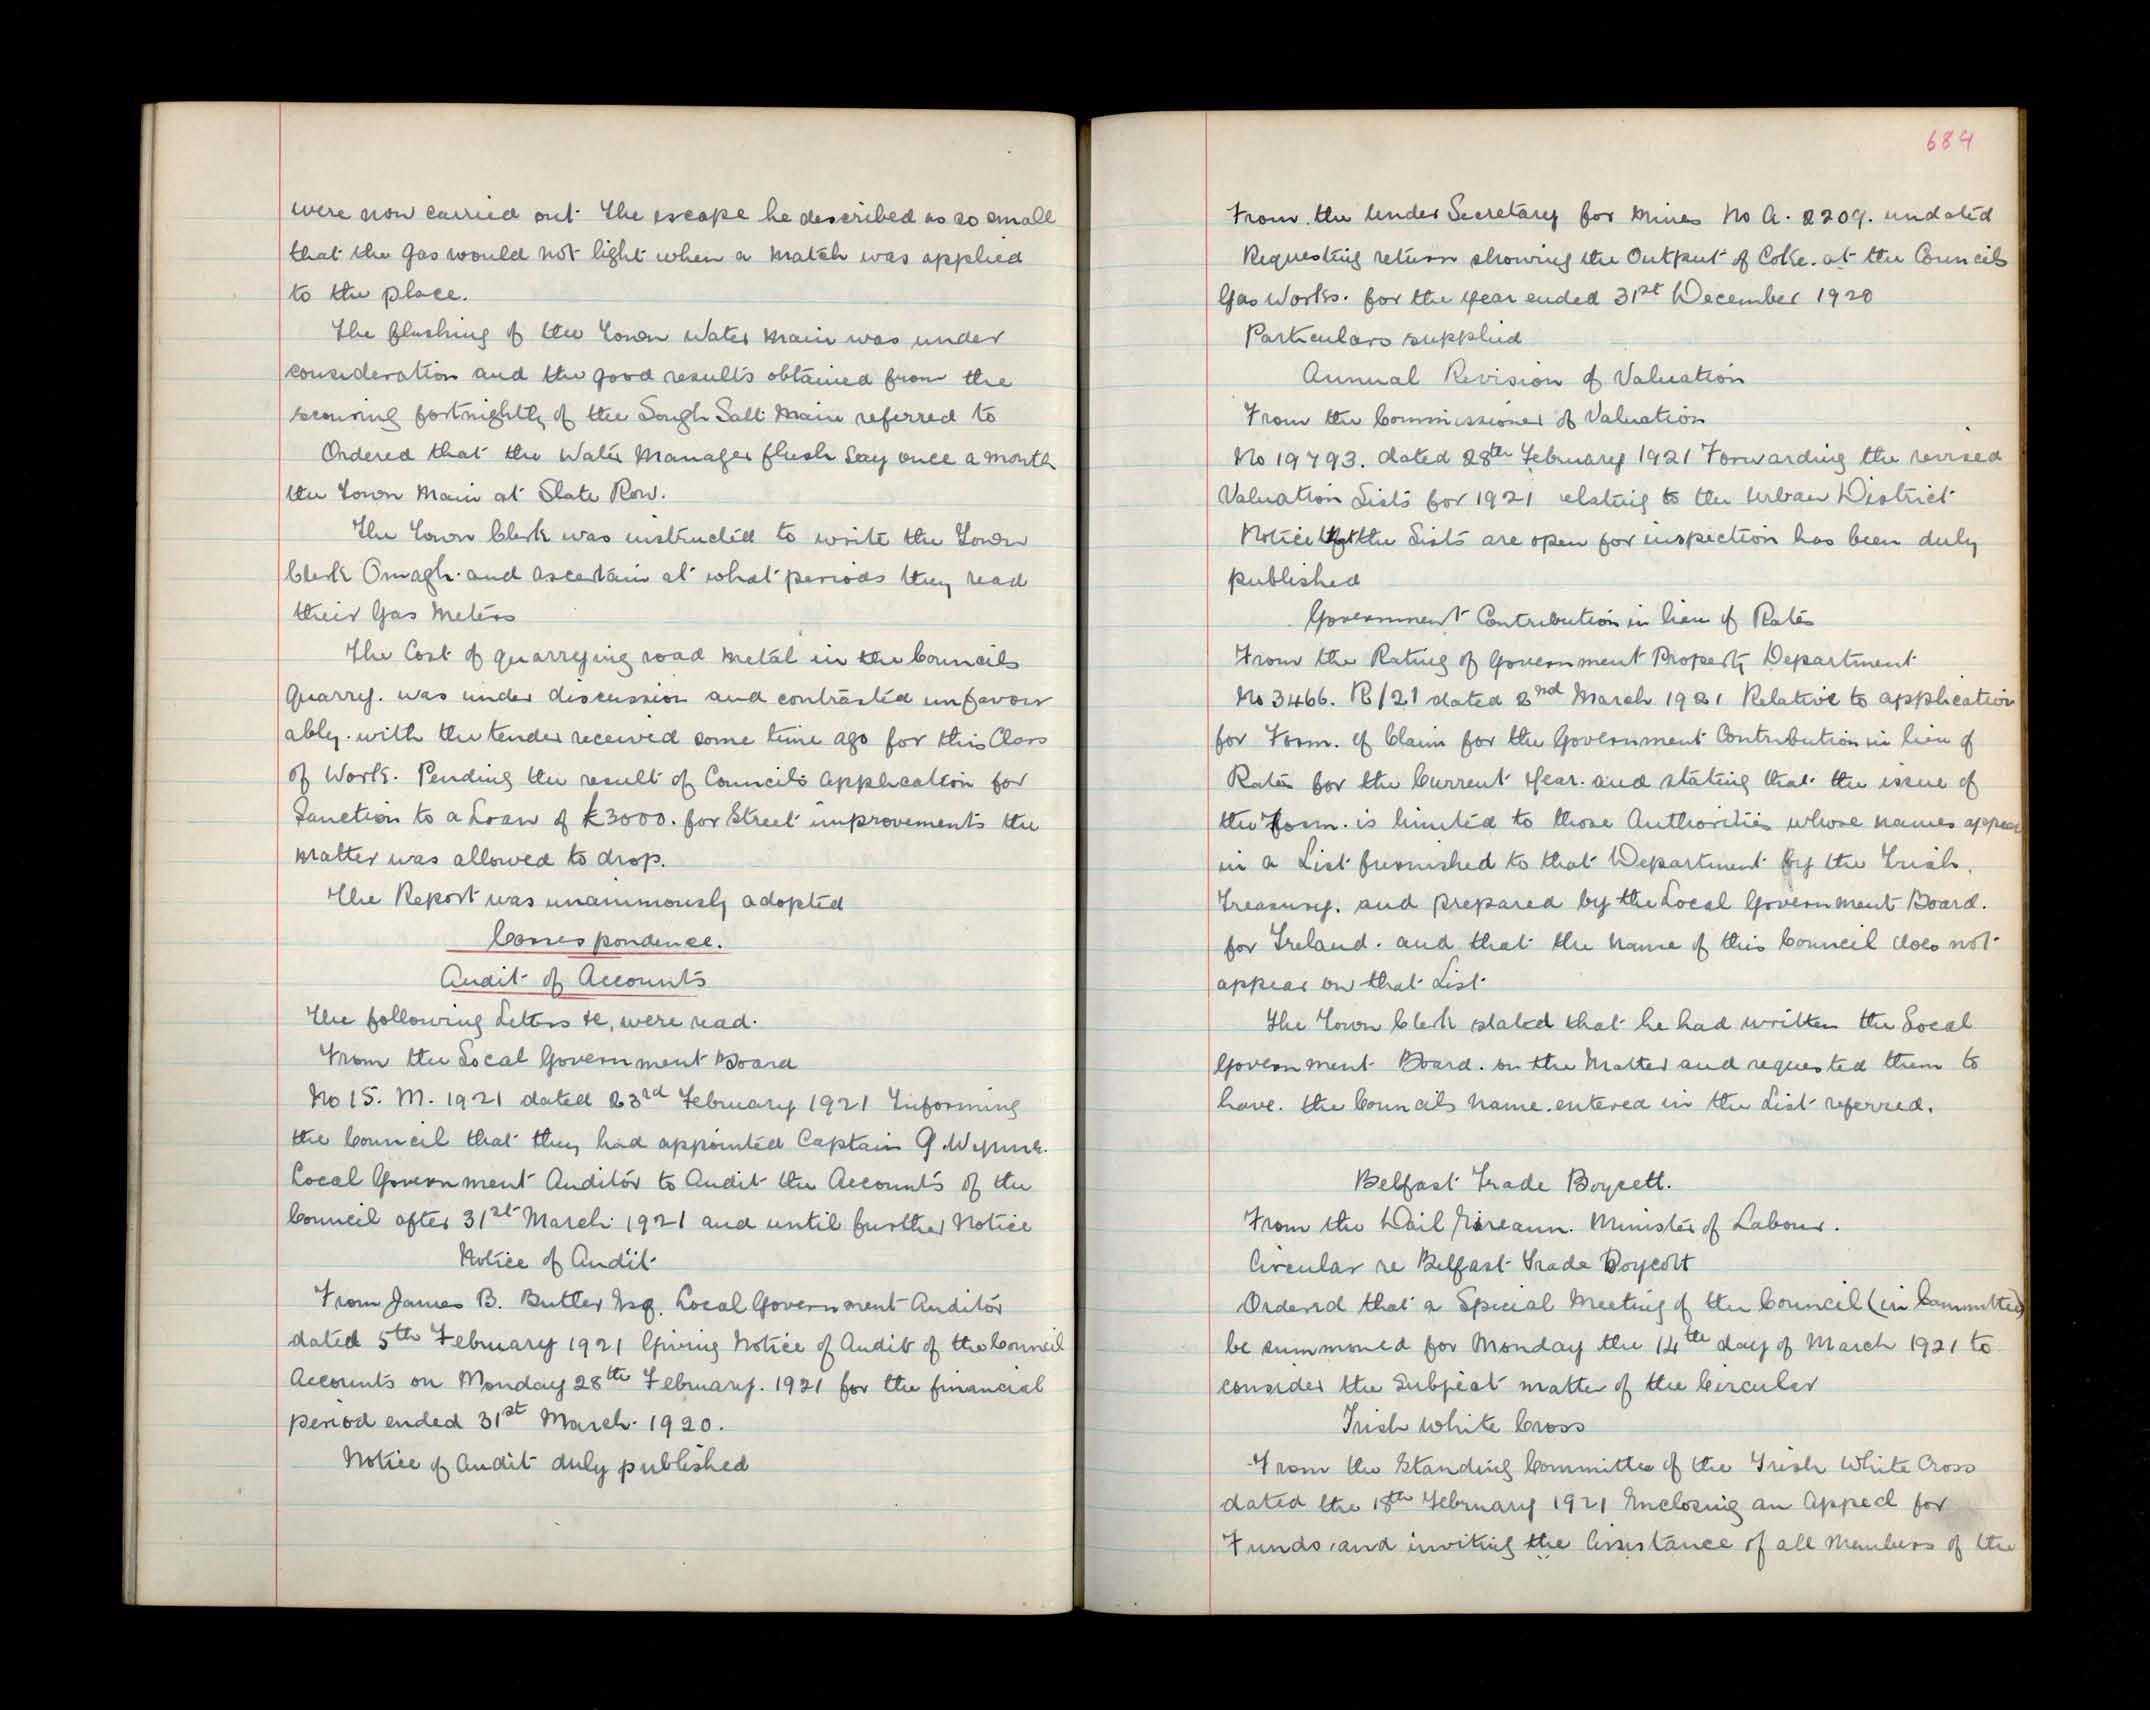 were now carried out. The escape he described as so small
that the Gas would not light when a match was applied
to the place.
The flushing of the Town Water Main was under
consideration and the good results obtained from the
scouring fortnightly of the Lough Salt Main referred to
Ordered that the Water Manager flush say once a month
the Town Main at Slate Row.
The Town Clerk was instructed to write the Town
Clerk Omagh and ascertain at what periods they read
their Gas Meters
The Cost of quarrying road metal in the Councils
Quarry. was under discussion and contrasted unfavour
ably. with the tender received some time ago for this Class
of Work. Pending the result of Councils application for
Sanction to a Loan of £3000. for Street improvements the
matter was allowed to drop.
The Report was unanimously adopted
Correspondence.
Audit of Accounts
The following Letters &c, were read.
From the Local Government Board
No 15. M. 1921 dated 23rd February 1921 Informing
the Council that they had appointed Captain G. Wynne.
Local Government Auditor to Audit the Accounts of the
Council after 31st March 1921 and until further Notice
Notice of Audit
From James B. Butler Esq. Local Government Auditor
dated 5th February 1921 Giving Notice of Audit of the Council
Accounts on Monday 28th February. 1921 for the financial
period ended 31st March 1920.
Notice of Audit duly published
684
From the Under Secretary for Mines No A. 2209. undated
Requesting return showing the Output of Coke. at the Councils
Gas Works. for the year ended 31st December 1920
Particulars supplied
Annual Revision of Valuation
From the Commissioner of Valuation
No 19793. dated 28th February 1921 Forwarding the revised
Valuation Lists for 1921 relating to the Urban District
Notice that the Lists are open for inspection has been duly
published
Government Contribution in lieu of Rates
From the Rating of Government Property Department
No 3466. R/21 dated 2nd March 1921 Relative to application
for Form. of Claim for the Government Contribution in lieu of
Rates for the Current Year. and stating that the issue of
the Form. is limited to those Authorities whose names appear
in a List furnished to that Department by the Irish.
Treasury. and prepared by the Local Government Board.
for Ireland. and that the name of this Council does not
appear on that List
The Town Clerk stated that he had written the Local
Government Board. on the Matter and requested them to
have. the Councils name. entered in the List referred.
Belfast Trade Boycott.
From the Dail Eireann. Minister of Labour.
Circular re Belfast Trade Boycott
Ordered that a Special Meeting of the Council (in Committee)
be summoned for Monday the 14th day of March 1921 to
consider the subject matter of the Circular
Irish White Cross
From the Standing Committee of the Irish White Cross
dated the 18th February 1921 Enclosing an Appeal for
Funds. and inviting the Assistance of all Members of the